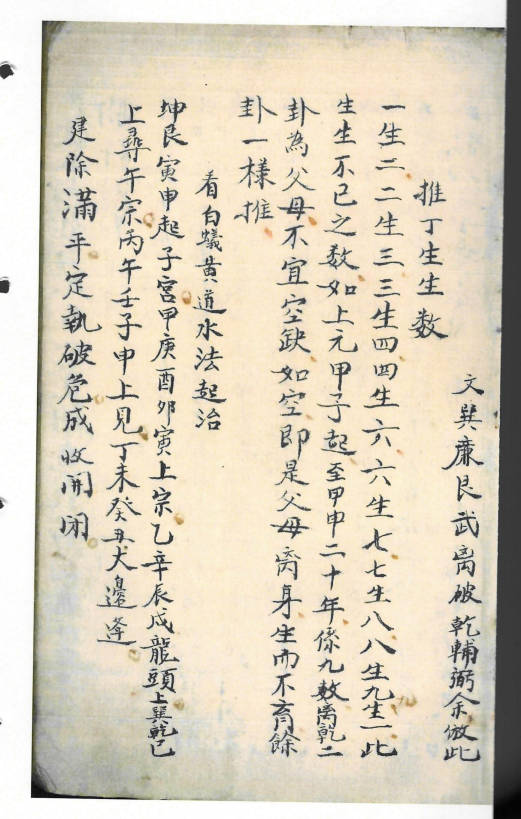 文巽廉艮武离破乾輔弼余倣此
推丁生生数
一生二二生三三生四四生六六生七七生八八生九生一此
生生不已之数如上元甲子起至甲申二十年係九数离乾二
卦為父母不宜空缺如空即是父母离身生而不育餘
卦一樣推
看白蟻黄道水法起治
坤艮寅申起子宫甲庚酉卯寅上宗乙辛辰戍龍頭上巽乾巳
上尋午宗丙午壬子申上見丁未癸丑犬邊逢
建除滿平定執破危成收開闭